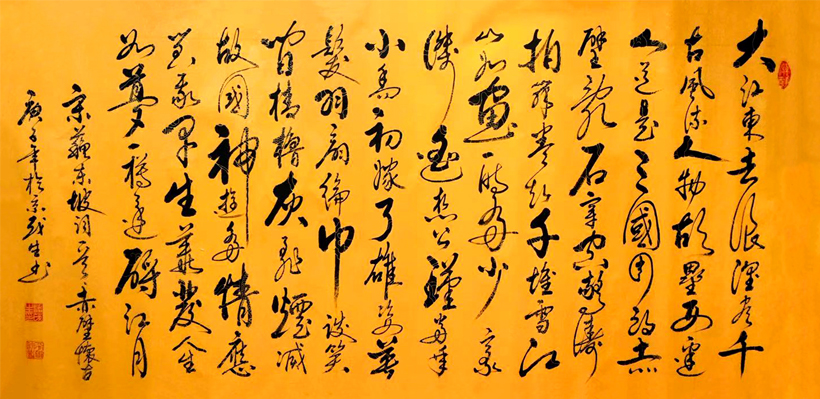 大江東去浪淘尽千
古風流人物故壘西邊
人道是三國周郎赤
壁亂石穿空驚濤
拍岸卷起千堆雪江
山如畫一時多少豪
傑遙想公瑾當年
小喬初嫁了雄姿英
髮羽扇綸巾談笑
間檣櫓灰飛煙滅
故國神遊多情應
笑我早生華發人生
如夢一樽還酹江月
宋蘇東坡詞一首赤壁懷古
庚子年於京